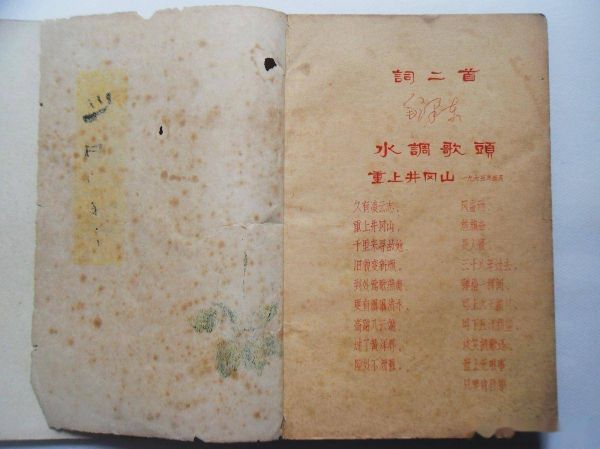 詞二首
毛泽东
水調歌頭
重上井冈山 一九六五年五月
久有凌云志,
重上井冈山。
千里来寻故地,
旧貌变新颜。
到处莺歌燕舞,
更有潺潺流水,
高路入云端。
过了黄洋界,
险处不须看。
风雷动,
旌旗奋,
是人寰。
三十八年过去,
弹指一挥间。
可上九天揽月,
可下五洋捉鳖,
谈笑凯歌还。
世上无难事,
只要肯登攀